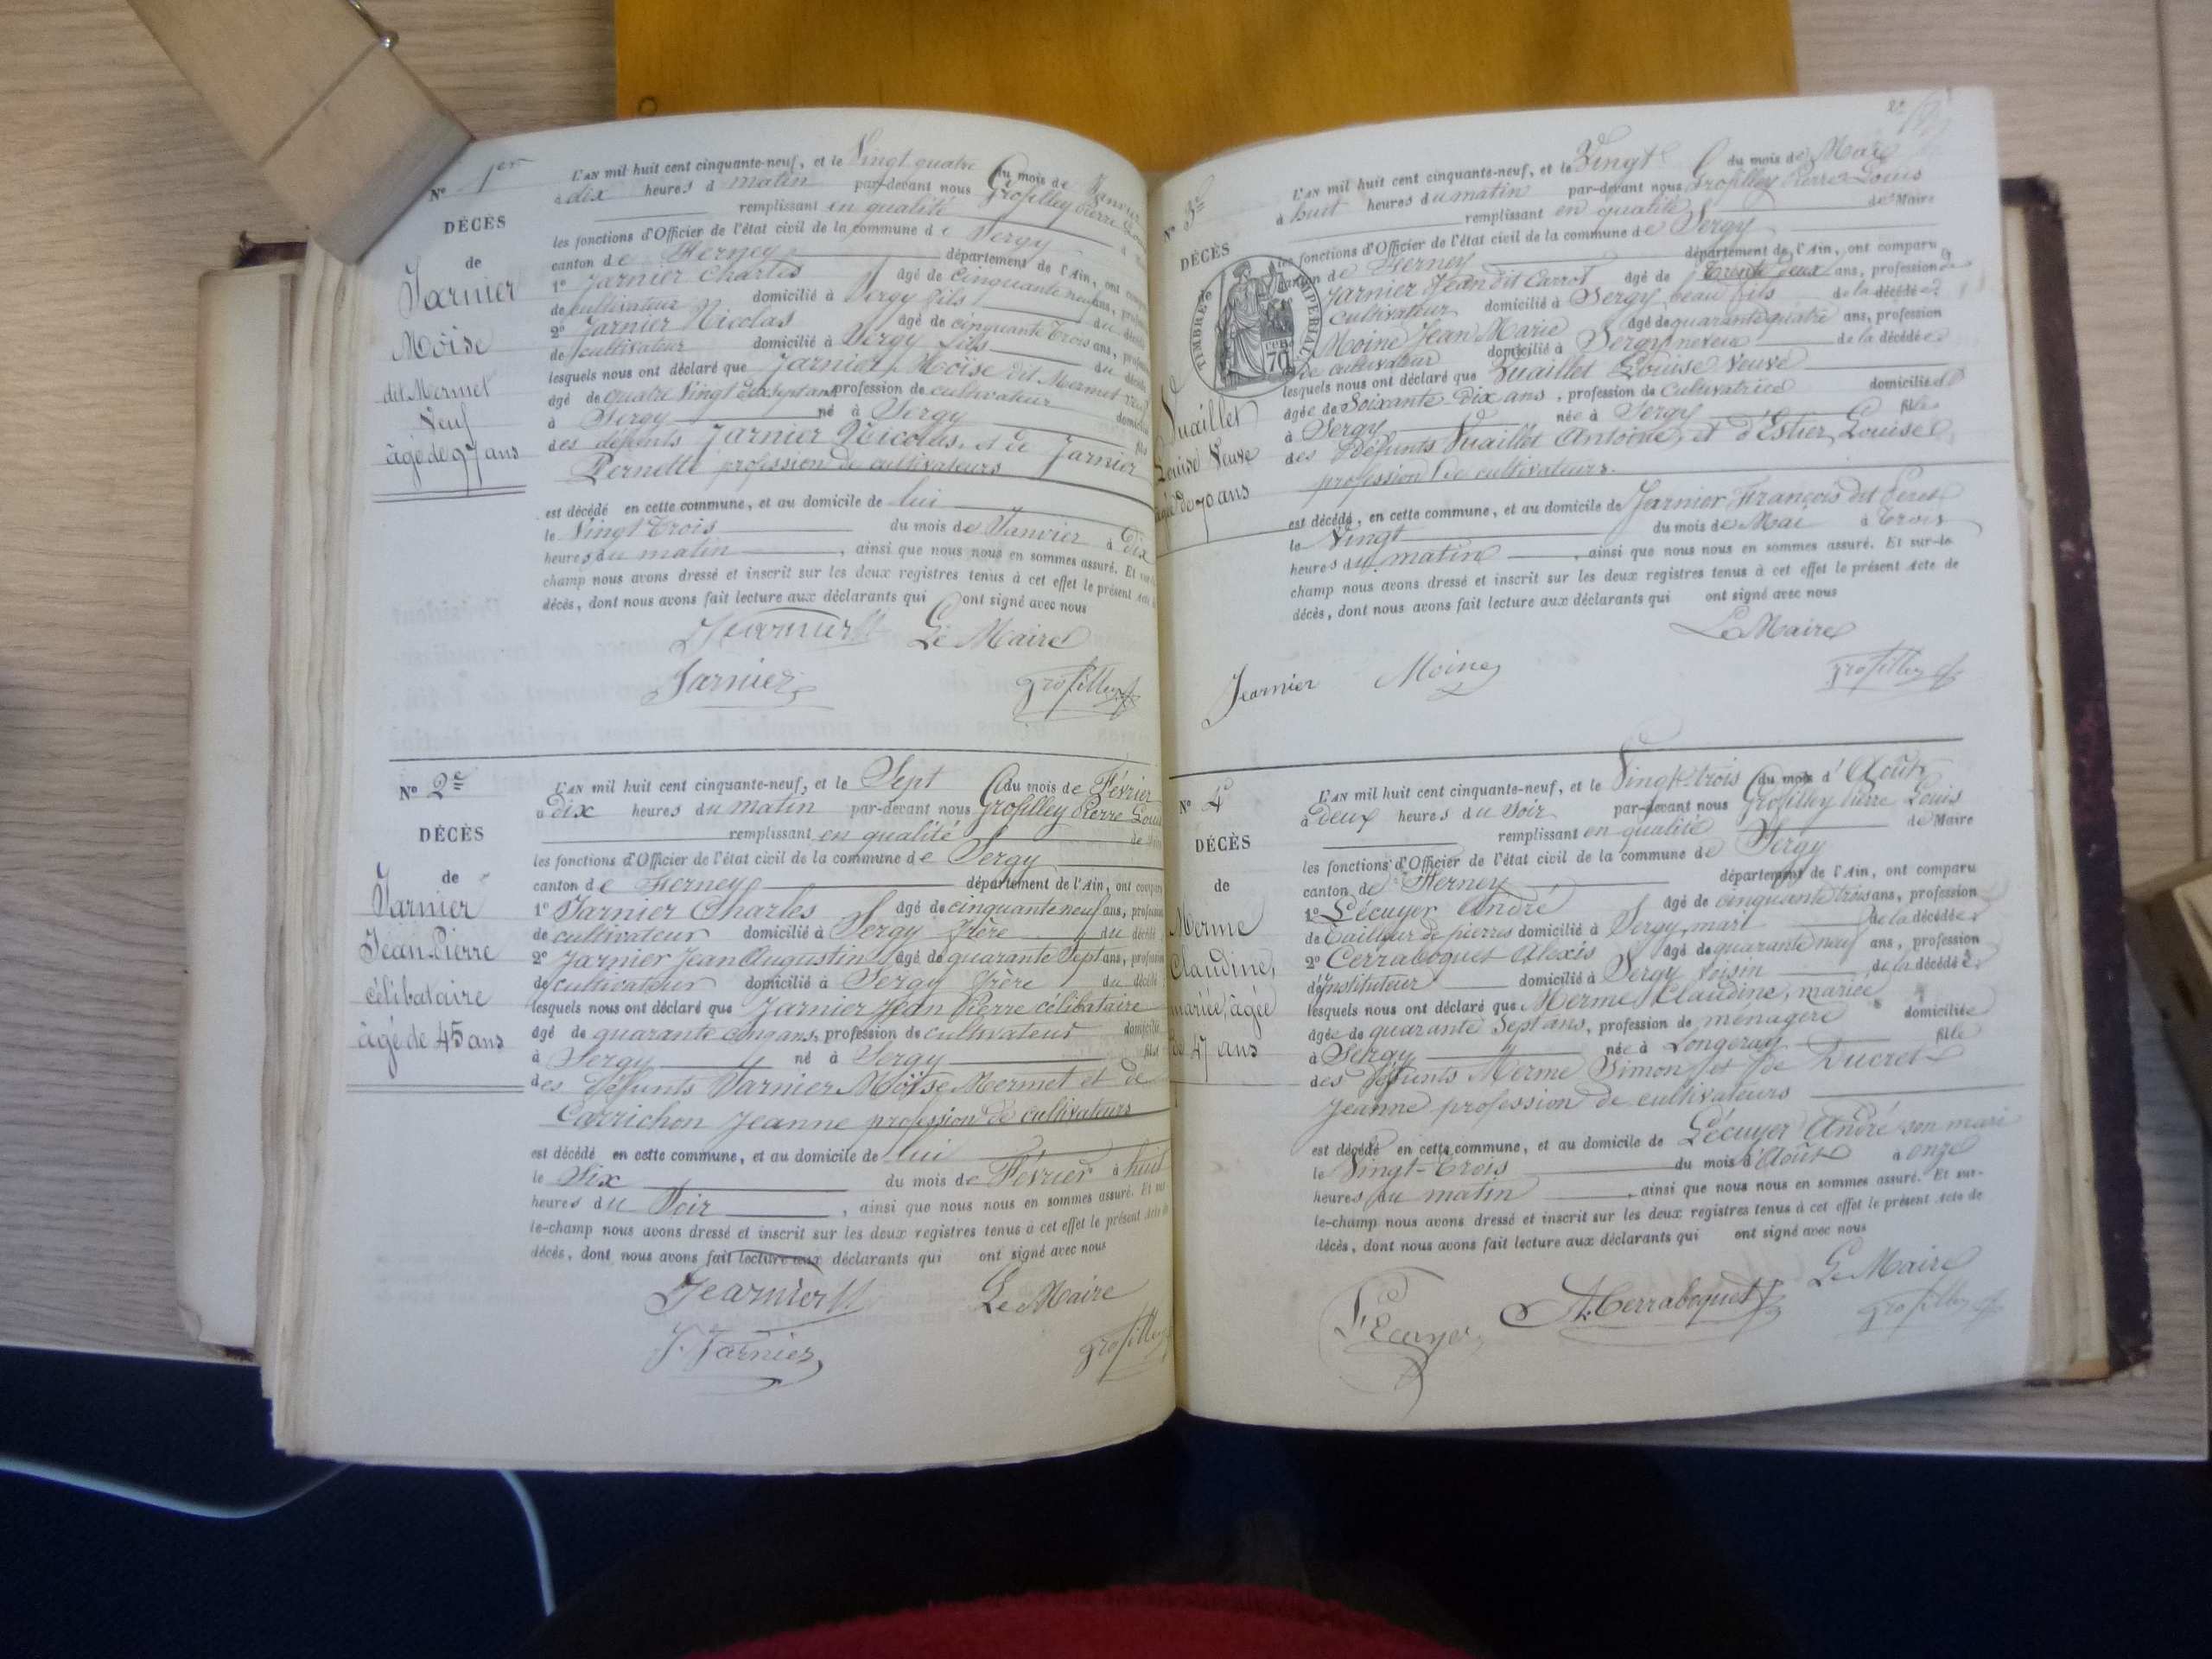 N° 1er
DÉCÈS
de
Jarnier
Moïse
dit Mermet
Veuf
âgé de 97 ans
L'AN mil huit cent cinquante-neuf, et le Vingt quatre du mois de Janvier
à dix heures d matin par-devant nous Grosfilley Pierre
remplissant en qualité
les fonctions d'Officier de l'état civil de la commune de Sergy
canton de Ferney département de l'Ain, ont
1° Jarnier Charles âgé de Cinquante neuf ans,
de cultivateur domicilié à Sergy fils du
2° Jarnier Nicolas âgé de cinquante trois ans,
de cultivateur domicilié à Sergy fils du
lesquels nous ont déclaré que Jarnier Moïse dit Mermet
âgé de quatre Vingt dix sept ans, profession de cultivateur
à Sergy né à Sergy fils
des défunts Jarnier Nicolas, et de Jarnier
Pernette profession de cultivateurs
est décédé en cette commune, et au domicile de lui
le Vingt Trois du mois de Janvier à Dix
heures du matin, ainsi que nous nous en sommes assuré. Et
champ nous avons dressé et inscrit sur les deux registres tenus à cet effet le présent Acte
décès, dont nous avons fait lecture aux déclarants qui ont signé avec nous
Jearnier Le Maire
Jarnier Grosfilley
N° 2e
DÉCÈS
de
Jarnier
Jean-Pierre
célibataire
âgé de 45 ans
L'AN mil huit cent cinquante-neuf, et le Sept du mois de Février
à Dix heures du matin par-devant nous Grosfilley Pierre Louis
remplissant en qualité de
les fonctions d'Officier de l'état civil de la commune de Sergy
canton de Ferney département de l'Ain, ont comparu
1° Jarnier Charles âgé de cinquante neuf ans, profession
de cultivateur domicilié à Sergy frère du décédé
2° Jarnier Jean Augustin âgé de quarante Sept ans, profession
de cultivateur domicilié à Sergy frère du décédé
lesquels nous ont déclaré que Jarnier Jean Pierre célibataire
âgé de quarante cinq ans, profession de cultivateur domicilié
à Sergy né à Sergy fils
des défunts Jarnier Moïse Mermet et de
Carrichon Jeanne profession de cultivateurs
est décédé en cette commune, et au domicile de lui
le Six du mois de Février à huit
heures du Soir, ainsi que nous nous en sommes assuré. Et sur-
le-champ nous avons dressé et inscrit sur les deux registres tenus à cet effet le présent Acte de
décès, dont nous avons fait lecture aux déclarants qui ont signé avec nous
Jearnier Le Maire
J. Jarnier Grosfilley
N° 3e
DÉCÈS
de
Vuaillet
Louise Veuve
âgée de 70 ans
TIMBRE IMPERIAL
70
L'AN mil huit cent cinquante-neuf, et le Vingt du mois de Mai
à huit heures du matin par-devant nous Grosfilley Pierre Louis
remplissant en qualité de Maire
les fonctions d'Officier de l'état civil de la commune de Sergy
canton de Ferney département de l'Ain, ont comparu
Jarnier Jean dit Carrot âgé de Trente deux ans, profession de
cultivateur domicilié à Sergy beau fils de la décédée
Moine Jean Marie âgé de quarante quatre ans, profession
de cultivateur domicilié à Sergy neveu de la décédée
lesquels nous ont déclaré que Vuaillet Louise Veuve
âgée de Soixante-dix ans, profession de Cultivatrice domiciliée
à Sergy née à Sergy fille
des Défunts Vuaillet Antoine, et d'Estier Louise
profession de cultivateurs.
est décédé, en cette commune, et au domicile de Jarnier François dit Peret
le Vingt du mois de Mai à Trois
heures du matin, ainsi que nous nous en sommes assuré. Et sur-le-
champ nous avons dressé et inscrit sur les deux registres tenus à cet effet le présent Acte de
décès, dont nous avons fait lecture aux déclarants qui ont signé avec nous
Le Maire
Jearnier Moine Grosfilley
N° 4e
DÉCÈS
de
Merme
Claudine,
mariée, âgée
de 47 ans
L'AN mil huit cent cinquante-neuf, et le Vingt-trois du mois d'Août
à deux heures du Soir par-devant nous Grosfilley Pierre Louis
remplissant en qualité de Maire
les fonctions d'Officier de l'état civil de la commune de Sergy
canton de Ferney département de l'Ain, ont comparu
1° Lécuyer André âgé de cinquante trois ans, profession
de Tailleur de pierres domicilié à Sergy, mari de la décédée
2° Cerraboquet Alexis âgé de quarante neuf ans, profession
d'Instituteur domicilié à Sergy Voisin de la décédée
lesquels nous ont déclaré que Merme Claudine, mariée
âgée de quarante Sept ans, profession de ménagère domiciliée
à Sergy née à Longeray fille
des défunts Merme Simon et de Ducret
Jeanne profession de cultivateurs
est décédé en cette commune, et au domicile de Lécuyer André son mari
le Vingt-Trois du mois d'Août à onze
heures du matin, ainsi que nous nous en sommes assuré. Et sur-
le-champ nous avons dressé et inscrit sur les deux registres tenus à cet effet le présent Acte de
décès, dont nous avons fait lecture aux déclarants qui ont signé avec nous
Le Maire
Lécuyer A. Cerraboquet Grosfilley